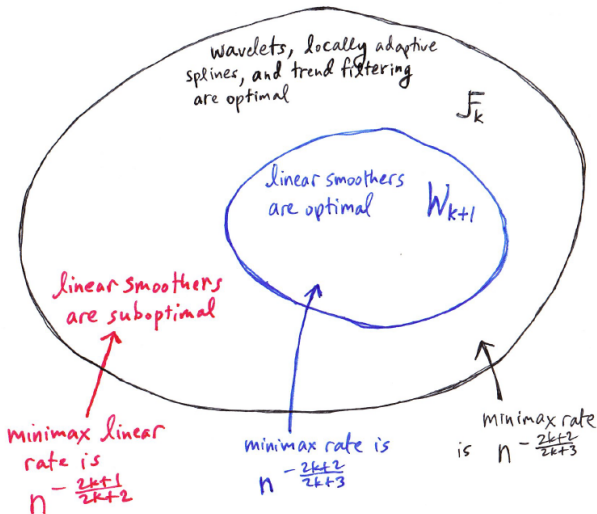 wavelets, locally adaptive
splines, and trend filtering
are optimal
F_k
linear smoothers
are optimal
W_{k+1}
linear smoothers
are suboptimal
minimax linear
rate is
n^{-\frac{2k+1}{2k+2}}
minimax rate is
n^{-\frac{2k+2}{2k+3}}
minimax rate
is n^{-\frac{2k+2}{2k+3}}